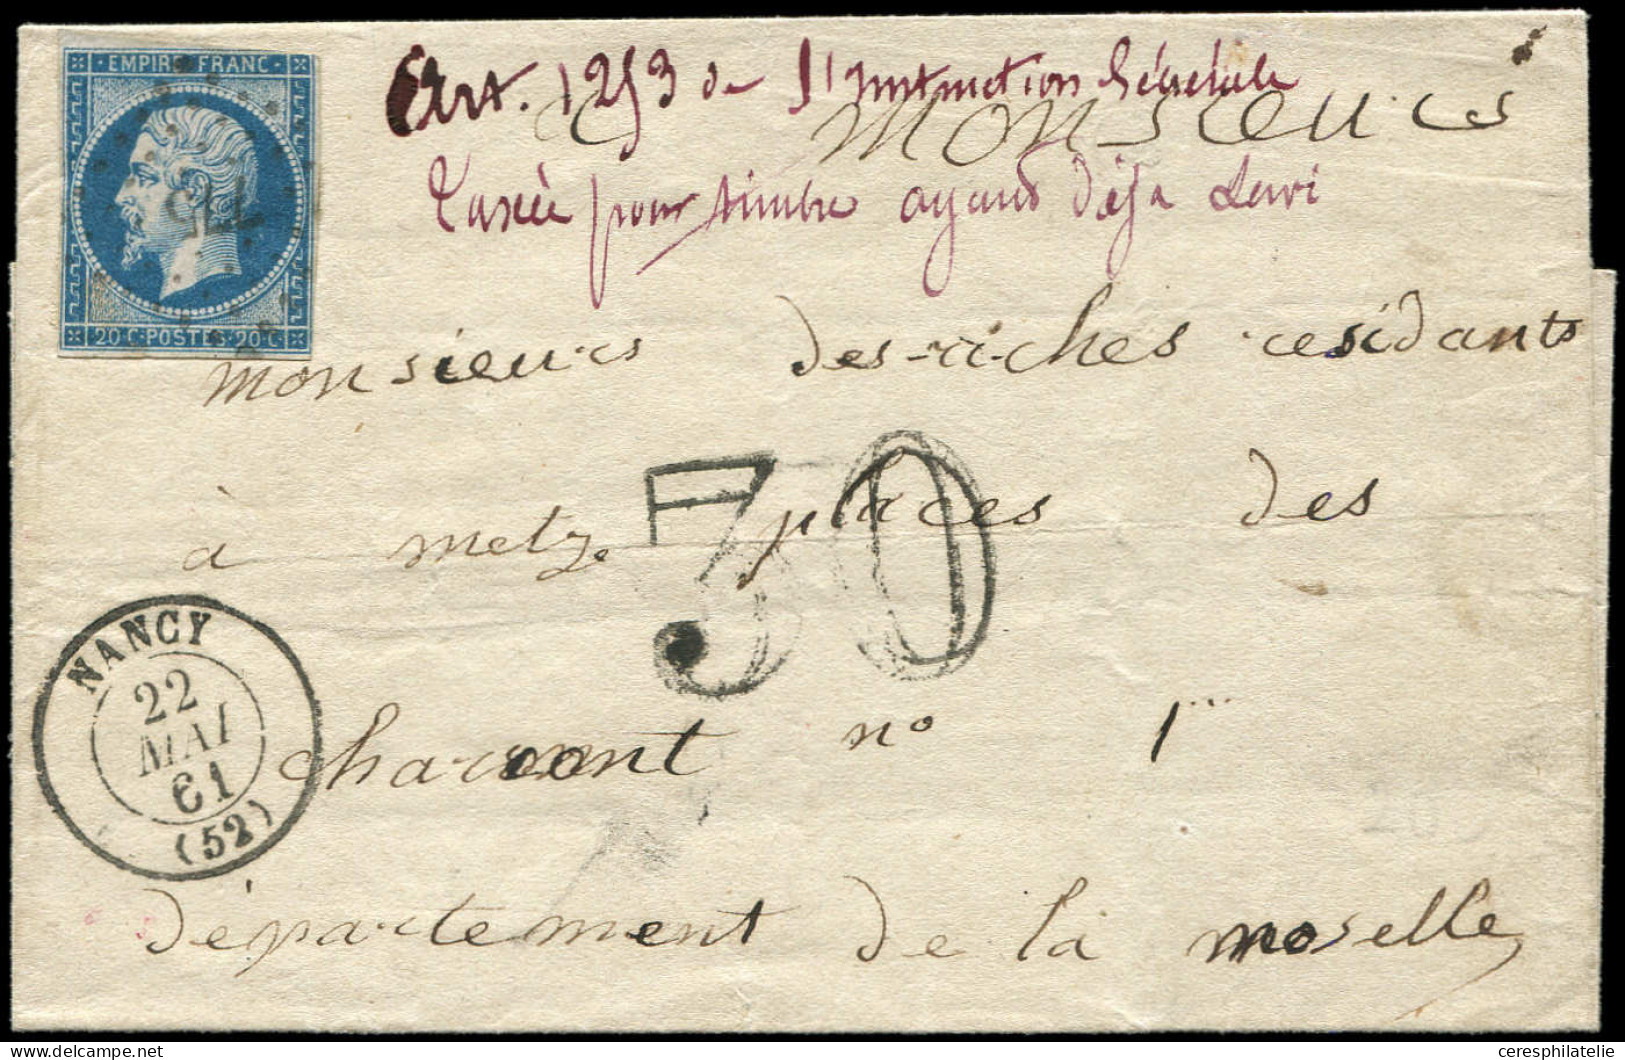 EMPIRE FRANC
20 C·POSTES·20 C
Art. 1253 de l'Instruction Générale
a monsieurs
Taxée pour timbre ayant déjà servi
monsieurs des-riches residants
à metz places des
30
no 1
NANCY
22
MAI
61
(52)
département de la moselle
ceresphilatelie